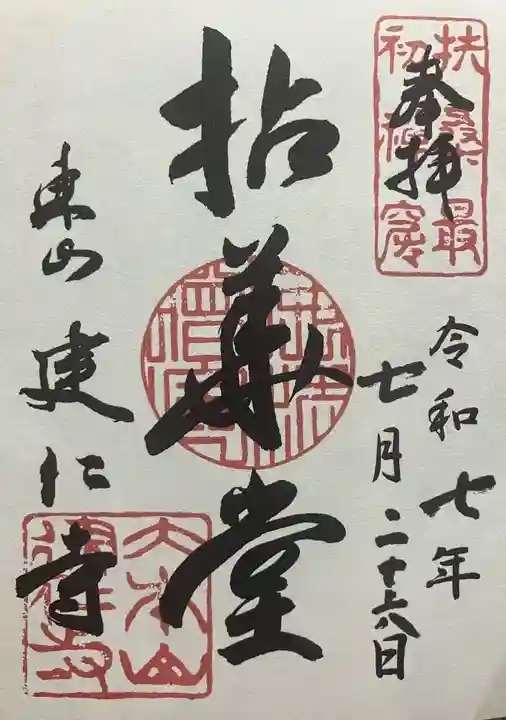 扶桑最
初禅窟
奉拝
令和七年
七月二十六日
拈華堂
東山建仁寺
大本山
建仁寺